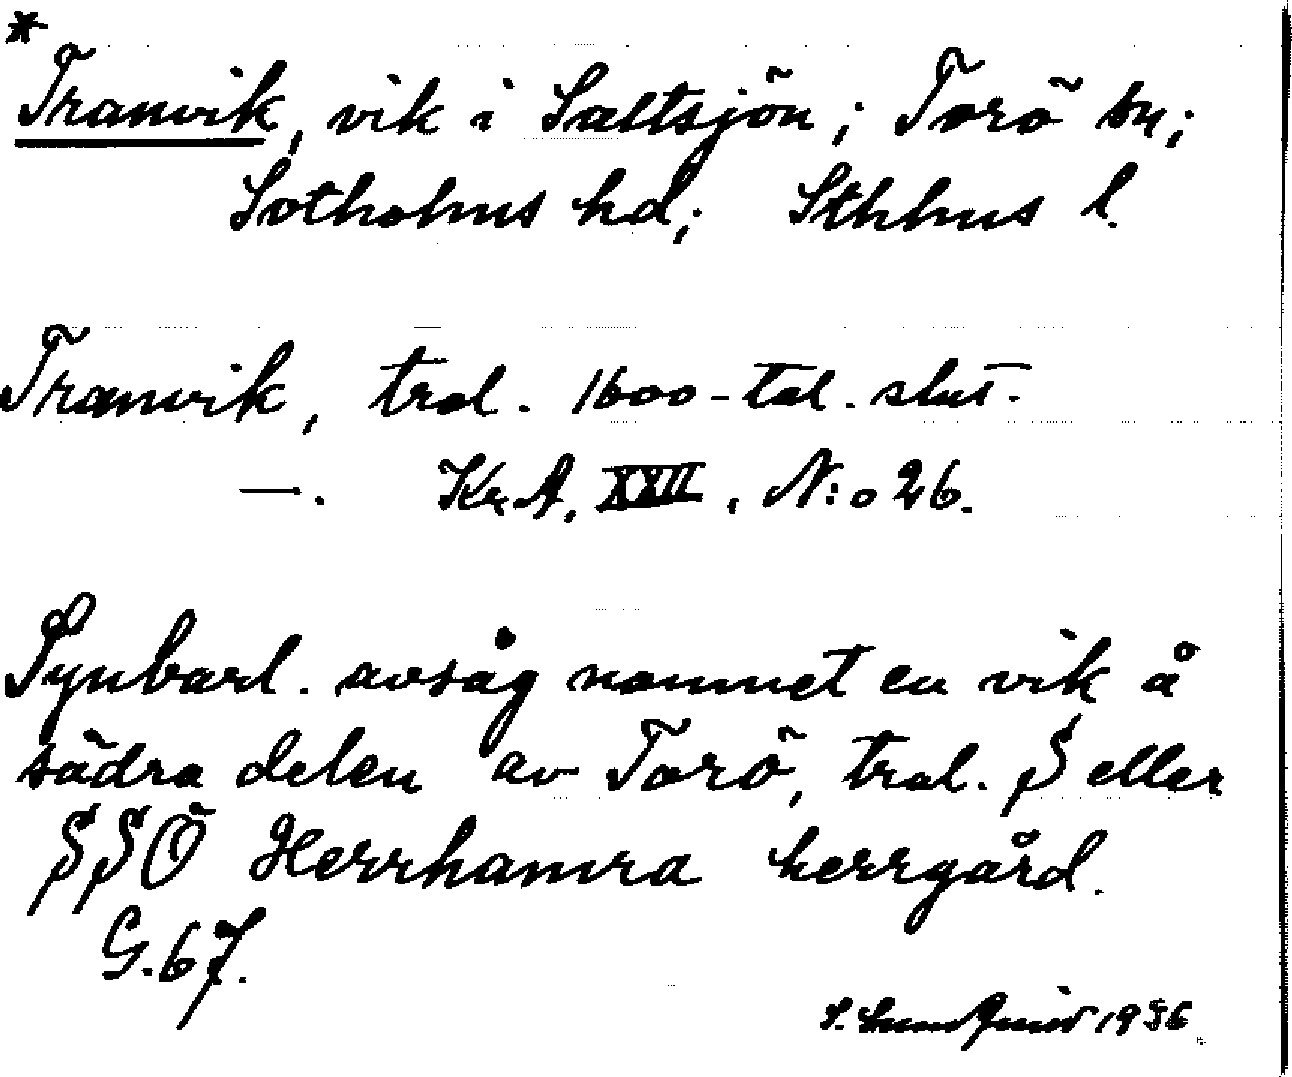 *
Tranvik, vik i Saltsjön; Torö sn;
Sotholms hd; Sthlms l.
Tranvik, trol. 1600-tal. slut.
—. Kr.A. XXII, N:o 26.
Synbarl. avsåg namnet en vik å
södra delen av Torö, trol. S eller
SSÖ Herrhamra herrgård.
G. 67.
S. 1936